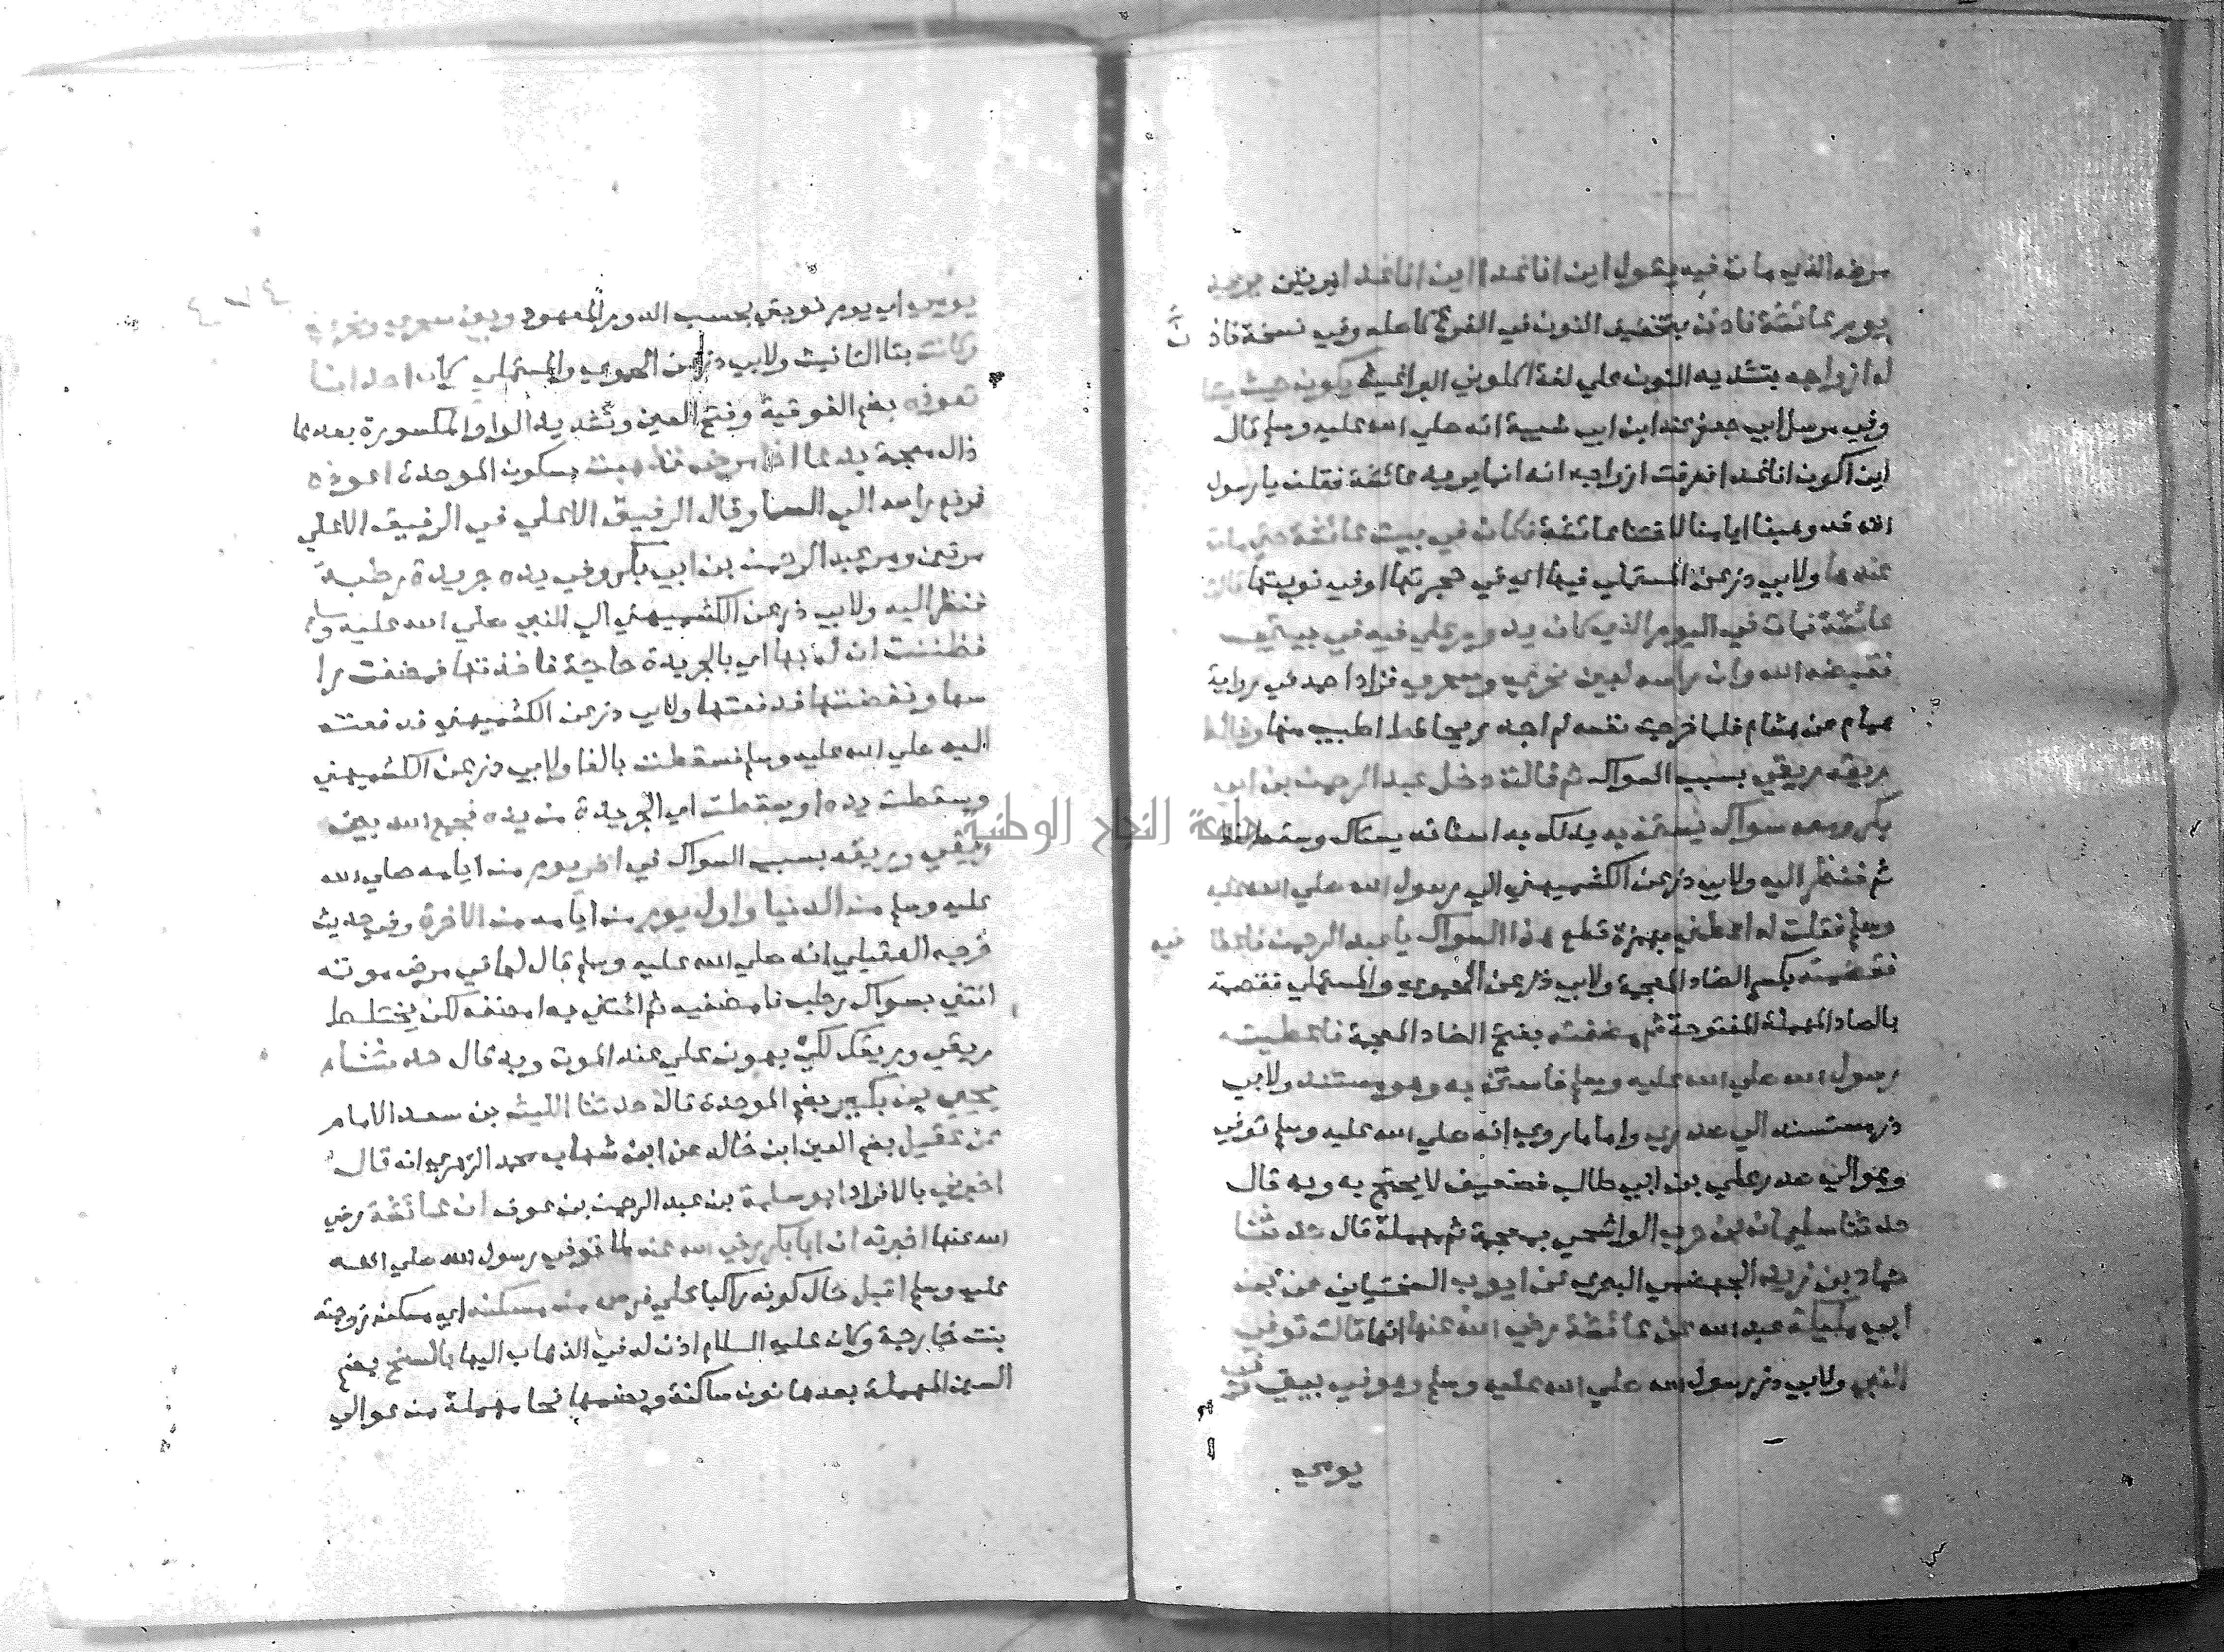 مرضه الذي مات فيه يقول اين انا غدا اين انا غدا يريد
يوم عائشة فاذن بتخفيف النون في الفرع كاصله وفي نسخة فاذن
له ازواجه بتشديد النون على لغة اكلوني البراغيث يكون حيث يشا
وفي مرسل ابي جعفر عند ابن ابي شيبة انه صلي الله عليه وسلم قال
اين اكون انا غدا فعرفت ازواجه انه انما يريد عائشة فقلن يا رسول
الله قد وهبنا ايامنا لاختنا عائشة فكان في بيت عائشة حتي مات
عندها ولابي ذر عن المستملي فيها اي في حجرتها او في نوبتها قالت
عائشة فمات في اليوم الذي كان يدور علي فيه في بيتي
فقبضه الله وان راسه لبين نحري وسحري فزاد احمد في رواية
همام عن هشام فلما خرجت نفسه لم اجد ريحا قط اطيب منها وخالط
ريقه ريقي بسبب السواك ثم قالت دخل عبد الرحمن بن ابي
بكر ومعه سواك يستن به يدلك به اسنانه يستاك وسقط لفظ
ثم فنظر اليه ولابي ذر عن الكشميهني الي رسول الله صلي الله عليه
وسلم فقلت له اعطني بهمزة قطع هذا السواك يا عبد الرحمن فاعطانيه
فقضمته بكسر الضاد المعجمة ولابي ذر عن الحموي والمستملي فقصمته
بالصاد المهملة المفتوحة ثم مضغته بفتح الضاد المعجمة فاعطيته
رسول الله صلي الله عليه وسلم فاستن به وهو مستند ولابي
ذر مستسند الي صدري واما ما روي انه صلي الله عليه وسلم توفي
وهو الي صدر علي بن ابي طالب فضعيف لا يحتج به وبه قال
حدثنا سليمان بن حرب الواشحي بمعجمة ثم مهملة قال حدثنا
حماد بن زيد الجهضمي البصري عن ايوب السختياني عن ابن
ابي مليكة عبد الله عن عائشة رضي الله عنها انها قالت توفي
النبي ولابي ذر رسول الله صلي الله عليه وسلم وهو في بيتي وفي
يومي
يومي اي يوم نوبتي بحسب الدور المعهود وبين سحري ونحري
وكانت بتا التانيث ولابي ذر عن الحموي والمستملي كان احدانا
تعوذه بضم الفوقية وفتح العين وتشديد الواو المكسورة بعدها
ذال معجمة بدعا اذا مرض فذهبت بسكون الموحدة اعوذه
فرفع راسه الي السما وقال الرفيق الاعلي في الرفيق الاعلي
مرتين ومر عبد الرحمن بن ابي بكر وفي يده جريدة رطبة
فنظر اليه ولابي ذر عن الكشميهني الي النبي صلي الله عليه وسلم
فظننت ان له بها اي بالجريدة حاجة فاخذتها فمضغت را
سها ونفضتها فدفعتها ولابي ذر عن الكشميهني فدفعته
اليه صلي الله عليه وسلم فسقطت بالفا ولابي ذر عن الكشميهني
وسقطت يده او سقطت اي الجريدة من يده فجمع الله بين
ريقي وريقه بسبب السواك في اخر يوم من ايامه صلي الله
عليه وسلم من الدنيا واول يوم من ايامه من الاخرة وفي حديث
خرجه العقيلي انه صلي الله عليه وسلم قال لها في مرض موته
ائتني بسواك رطب فامضغيه ثم ائتني به امضغه لكن يختلط
ريقي وريقك لكي يهون علي عند الموت وبه قال حدثنا
يحيي بن بكير بضم الموحدة قال حدثنا الليث بن سعد الامام
عن عقيل بضم العين ابن خالد عن ابن شهاب محمد الزهري انه قال
اخبرني بالافراد ابو سلمة بن عبد الرحمن بن عوف ان عائشة رضي
الله عنها اخبرته ان ابا بكر رضي الله عنه لما توفي رسول الله صلي الله
عليه وسلم اقبل حال كونه راكبا علي فرس من مسكنه اي مسكن زوجته
بنت خارجة وكان عليه السلام اذن له في الذهاب اليها بالسنح بضم
السين المهملة بعدها نون ساكنة وبضمها فحا مهملة من عوالي
جامعة النجاح الوطنية